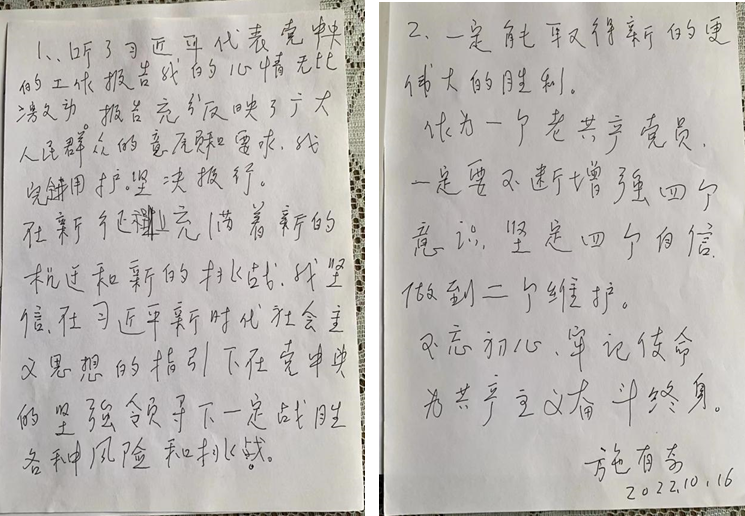 1、听了习近平代表党中央
的工作报告我的心情无比
激动,报告充分反映了广大
人民群众的意愿和要求,我
完全拥护。坚决执行。
在新征程上充满着新的
机遇和新的挑战,我坚
信,在习近平新时代社会主
义思想的指引下在党中央
的坚强领导下一定战胜
各种风险和挑战。
2、一定能取得新的更
伟大的胜利。
作为一个老共产党员,
一定要不断增强四个
意识,坚定四个自信,
做到二个维护。
不忘初心、牢记使命
为共产主义奋斗终身。
施有奇
2022.10.16